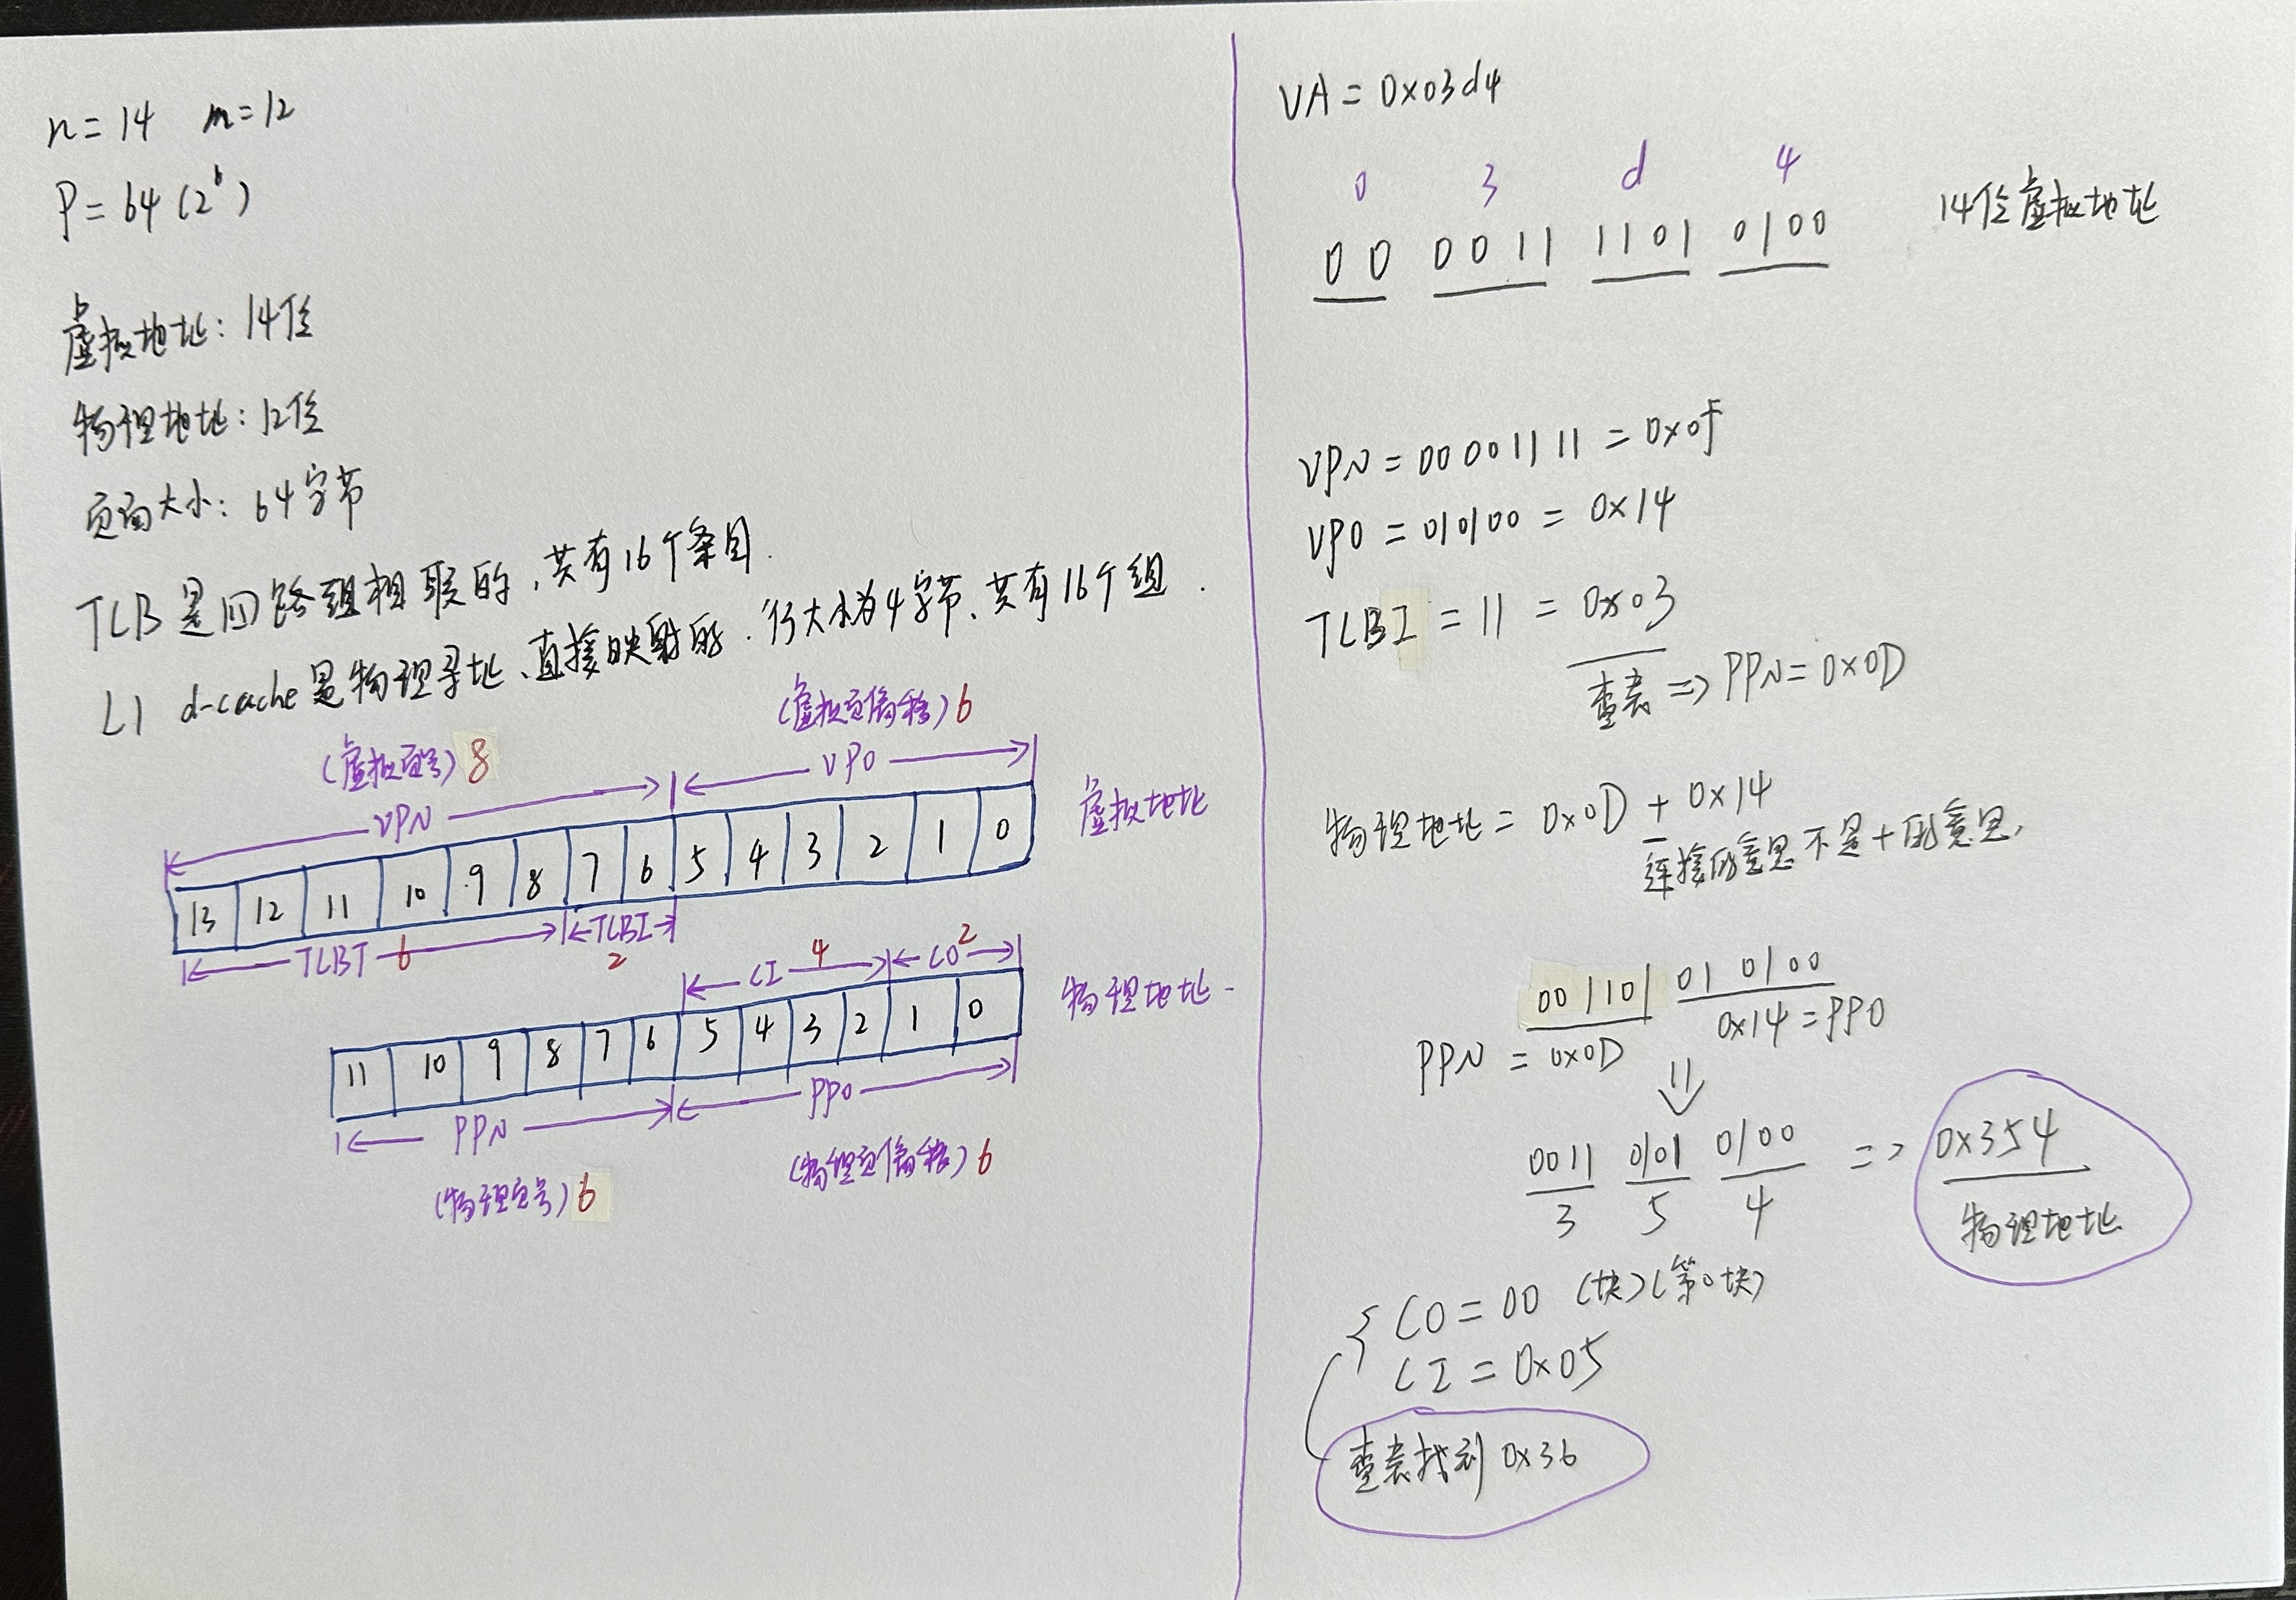 n=14 m=12
P=64(2⁶)
虚拟地址：14位
物理地址：12位
页面大小：64字节
TLB是四路组相联的，共有16个条目.
L1 d-cache是物理寻址、直接映射的.行大小为4字节、共有16个组.
(虚拟页号)8
(虚拟页偏移)6
VPN
VPO
虚拟地址
13 12 11 10 9 8 7 6 5 4 3 2 1 0
TLBT 6
TLBI 2
CI 4
CO 2
物理地址
11 10 9 8 7 6 5 4 3 2 1 0
PPN
PPO
(物理页号)6
(物理页偏移)6
VA=0x03d4
0 3 d 4
00 0011 1101 0100 14位虚拟地址
VPN=00001111=0x0F
VPO=010100=0x14
TLBI=11=0x03
查表⇒PPN=0x0D
物理地址=0x0D+0x14
连接的意思不是+的意思,
001101 010100
PPN=0x0D 0x14=PPO
⇓
0011 0101 0100 => 0x354
3 5 4 物理地址
{ CO=00 (块)(第0块)
CI=0x05
查表找到0x36